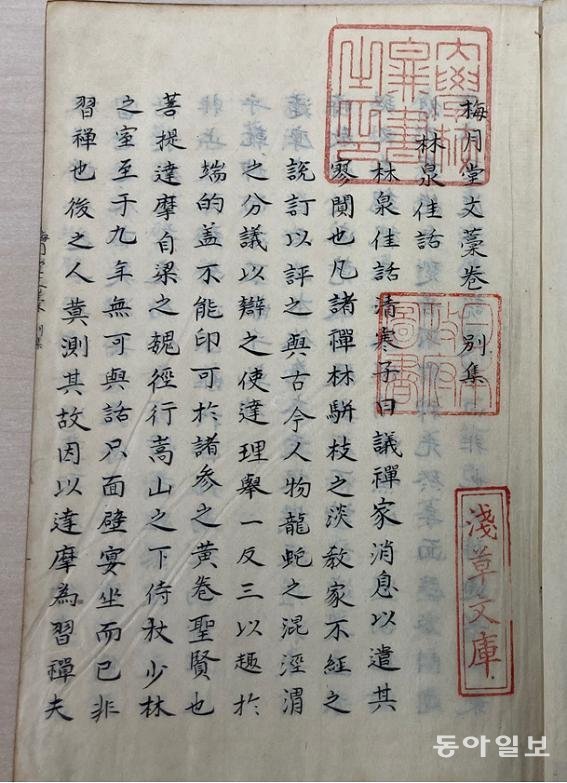 梅月堂文藁卷 別集
林泉佳話
林泉佳話清寒子曰議禪家消息以遣其
寥闃也凡諸禪林騈枝之淡教家不經之
說訂以評之與古今人物龍蛇之混涇渭
之分議以辯之使達理舉一反三以趣於
端的盖不能印可於諸參之黃卷聖賢也
菩提達摩自梁之魏徑行嵩山之下侍杖少林
之室至于九年無可與話只面壁宴坐而已非
習禪也後之人莫測其故因以達摩為習禪夫
大學校圖書之印
日本政府圖書
淺草文庫
동아일보